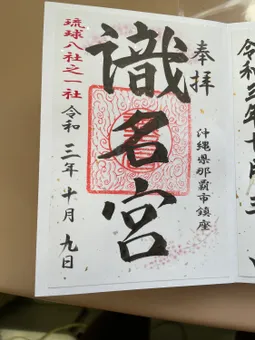 奉拝
沖縄県那覇市鎮座
識名宮
琉球八社之一社
令和三年十月九日
令和三年十月三